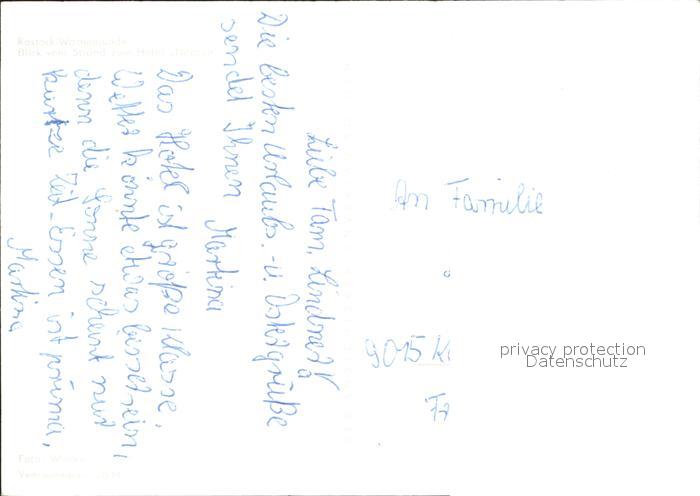 Rostock-Warnemünde
Blick vom Strand zum Hotel „Neptun“
Liebe Fam. Lindner!
Die besten Urlaubs.-u. Ostergrüße
sendet Ihnen Martina
Das Hotel ist große Klasse.
Wetter könnte etwas besser sein,
denn die Sonne scheint nur
kurtze Zeit. Essen ist prima,
Martina
Foto:
An Familie
9015 K
privacy protection
Datenschutz